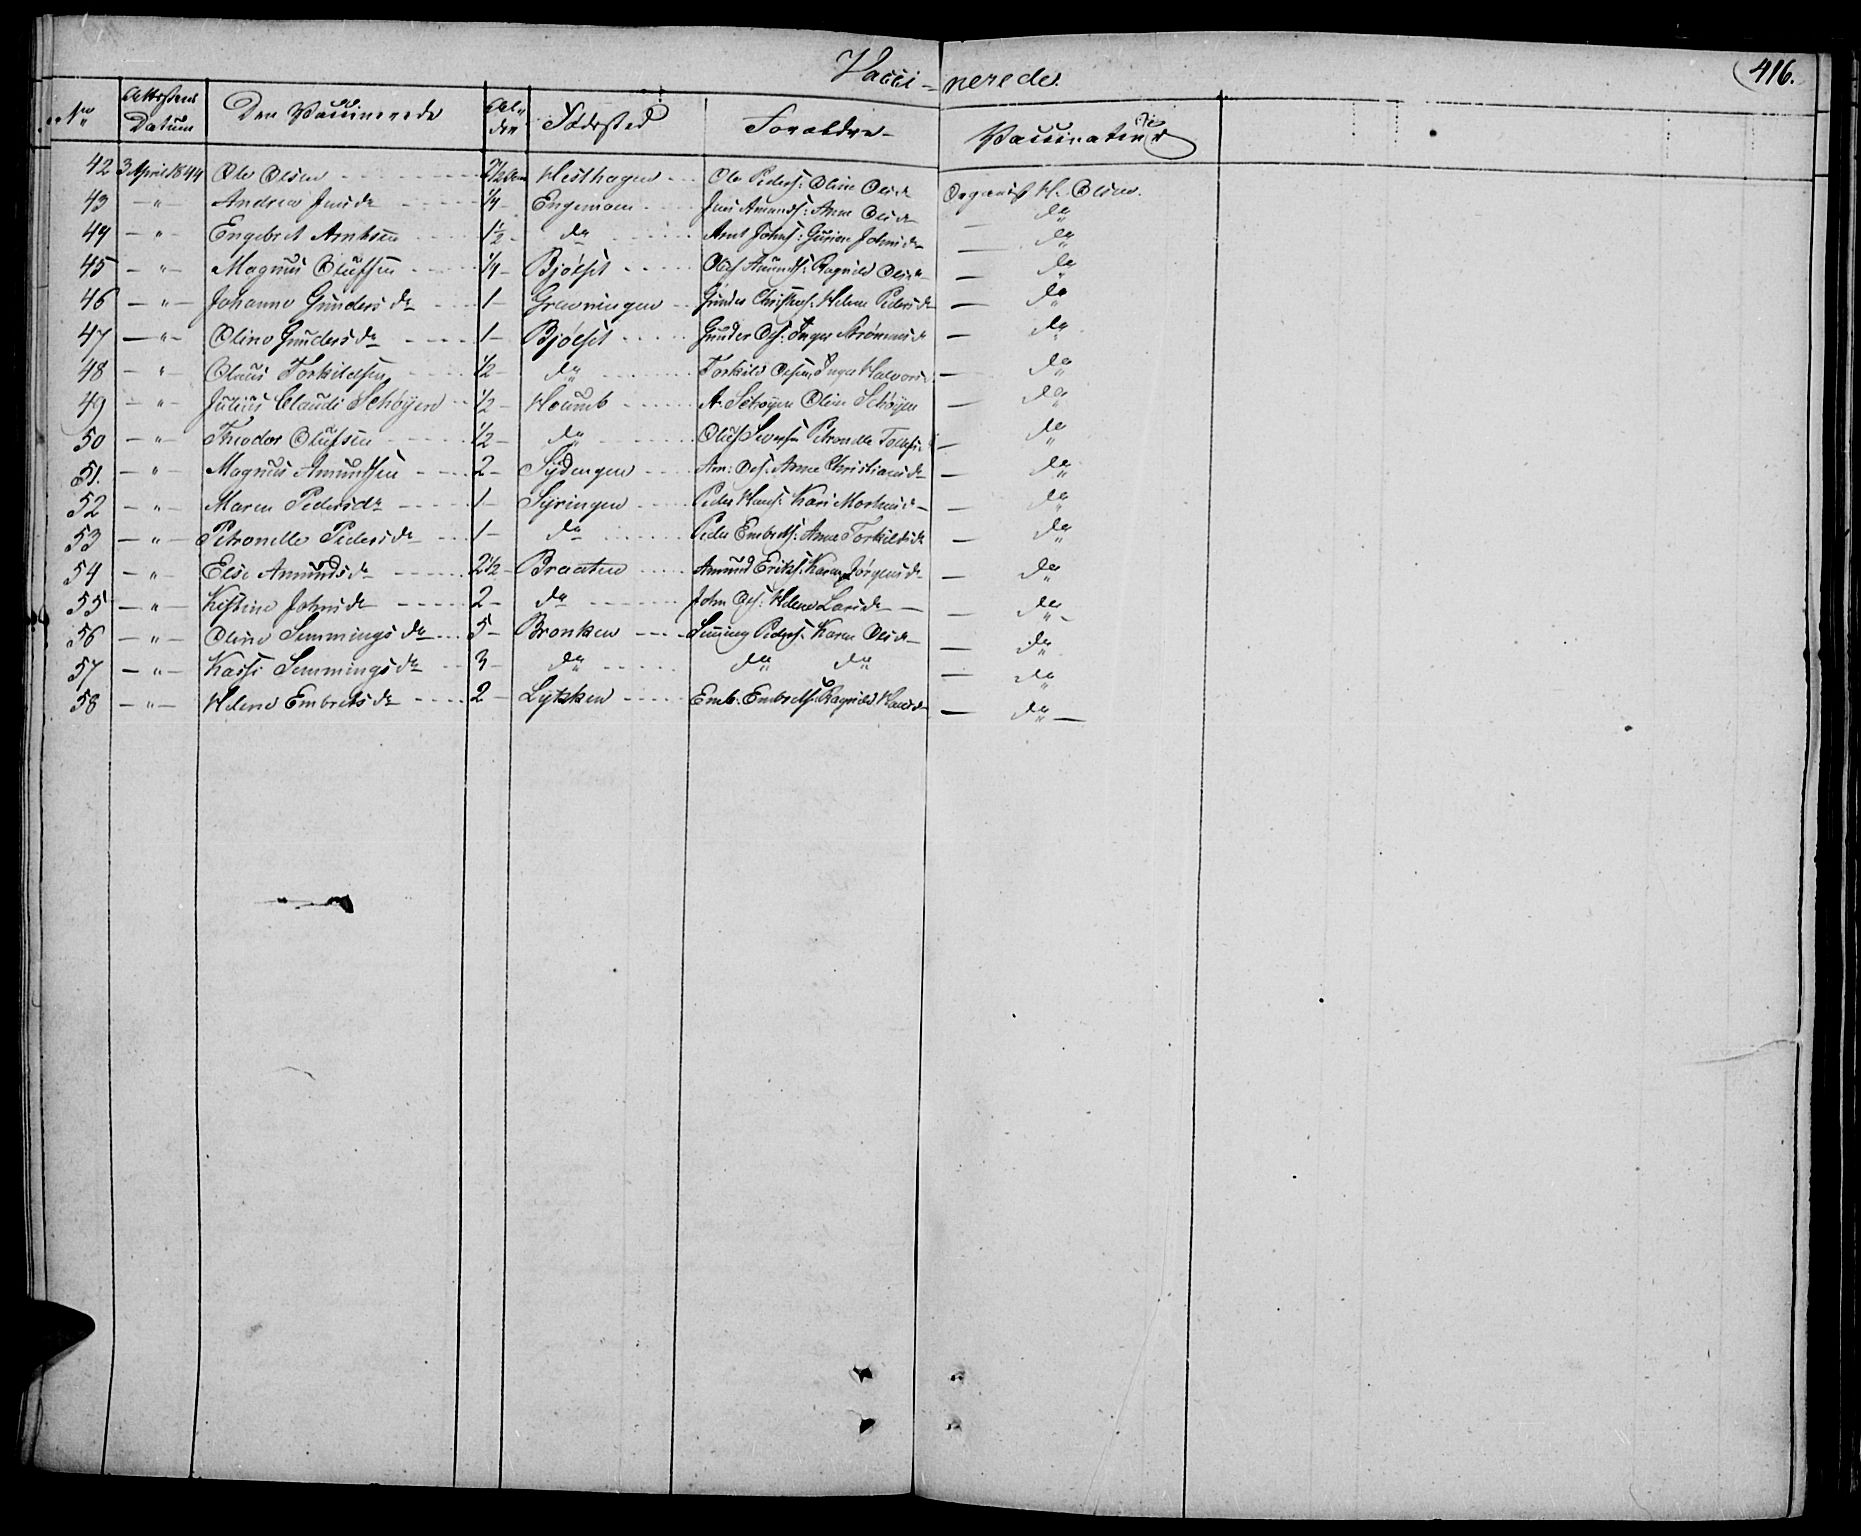 Vacci- nerede. 416.
No Attestens Datum Den Vaccinerede Al- der Fødested Forældre Vaccinateur
42 3 April 1844 Ole Olsen Hesthagen Ole Peders: Oline Olsdr Organist H. Olsen.
43 — " — Andrea Jensdr 1/4 — Engemoen Jens Amunds: Anne Olsdr — do
44 — " — Engebret Arntsen 1 1/2 — do Arnt Johns: Johnsdr — do
45 — " — Magnus Olufsen 1/4 — Bjølset Oluf Amunds: Ragnild Olsdr — do
46 — " — Johanne Gundersdr 1 — Gravningen Gunder Christophs: Helene Pedersdr — do
47 — " — Oline Gundersdr 1 — Bjølset Gunder Ols: Inger — do
48 — " — Olaus Torkildsen 1/2 — do Torkild Olsen, Inger Halvorsd — do
49 — " — Julius Claudi Schøyen 1/2 — Houmb A. Schøyen Oline Schøyen — do
50 — " — Theodor Olufsen 1/2 — do Oluf Petronelle — do
51. — " — Magnus Amundsen 2 — Sydengen Am: Ols: Anne Christiansdr — do
52 — " — Maren Pedersdr 1 — Syringen Peder Hans: Kari Mortensd — do
53 — " — Petronelle Pedersdr 1 — do Peder Embrets: Anne Torkildsdr — do
54 — " — Else Amundsdr 2 1/2 — Braaten Amund Eriks: Karen Jørgensdr — do
55 — " — Kistine Johnsdr 2 — do John Ols: Helene Larsdr — do —
56 — " — Oline Semmingsdr 5 — Bronken Semming Peders: Karen Olsdr — do
57 — " — Kassi Semmingsdr 3 — do do do — do
58 — " — Helene Embretsdr 2 — Lytsken Emb. Embrets: Ragnild Hansdr — do —